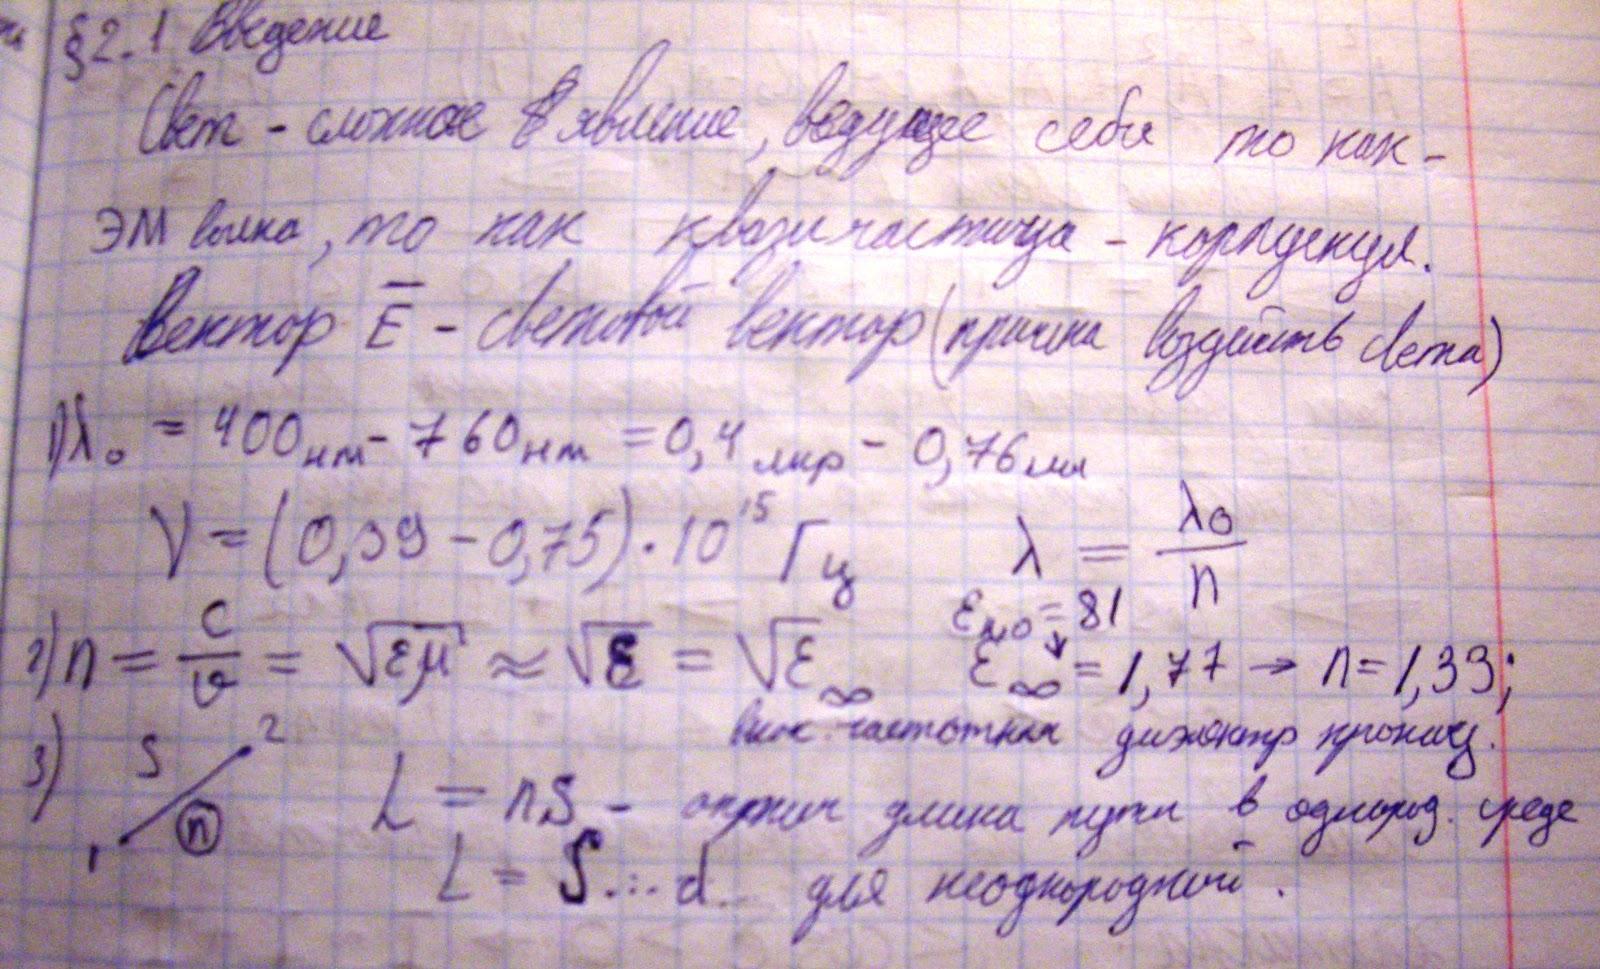 §2.1 Введение
Свет - сложное явление, ведущее себя то как -
ЭМ волна, то как квазичастица - корпускул.
Вектор E̅ - световой вектор (причина воздейств света)
1) λ₀ = 400нм - 760нм = 0,4 мкр - 0,76мк
ν = (0,39 - 0,75) · 10¹⁵ Гц λ = λ₀/n
2) n = c/υ = √εμ ≈ √ε = √ε∞ ε = 81 ↓ ε∞ = 1,77 → n = 1,33;
выс. частотная диэлектр прониц.
3) 1 S 2 n L = nS - оптич длина пути в однород. среде
L = S... d... для неоднородной.